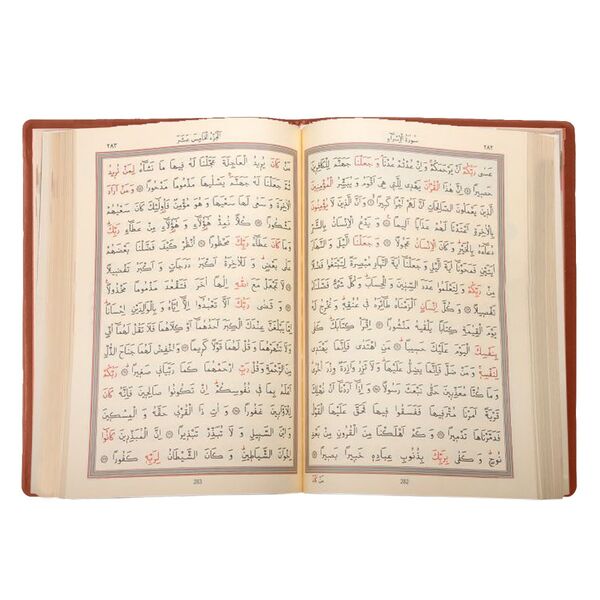 سُورَةُ الْاِسْرَاءِ
٢٨٢
عَسٰى رَبُّكُمْ اَنْ يَرْحَمَكُمْ وَاِنْ عُدْتُمْ عُدْنَا وَجَعَلْنَا جَهَنَّمَ لِلْكَافِرِينَ
حَصِيرًا اِنَّ هٰذَا الْقُرْاٰنَ يَهْدِى لِلَّتِى هِىَ اَقْوَمُ وَيُبَشِّرُ الْمُؤْمِنِينَ
الَّذِينَ يَعْمَلُونَ الصَّالِحَاتِ اَنَّ لَهُمْ اَجْرًا كَبِيرًا وَاَنَّ الَّذِينَ لَا يُؤْمِنُونَ
بِالْاٰخِرَةِ اَعْتَدْنَا لَهُمْ عَذَابًا اَلِيمًا وَيَدْعُ الْاِنْسَانُ بِالشَّرِّ
دُعَاءَهُ بِالْخَيْرِ وَكَانَ الْاِنْسَانُ عَجُولًا وَجَعَلْنَا الَّيْلَ وَالنَّهَارَ
اٰيَتَيْنِ فَمَحَوْنَا اٰيَةَ الَّيْلِ وَجَعَلْنَا اٰيَةَ النَّهَارِ مُبْصِرَةً لِتَبْتَغُوا فَضْلًا
مِنْ رَبِّكُمْ وَلِتَعْلَمُوا عَدَدَ السِّنِينَ وَالْحِسَابَ وَكُلَّ شَىْءٍ فَصَّلْنَاهُ
تَفْصِيلًا وَكُلَّ اِنْسَانٍ اَلْزَمْنَاهُ طَائِرَهُ فِى عُنُقِهِ وَنُخْرِجُ لَهُ
يَوْمَ الْقِيٰمَةِ كِتَابًا يَلْقٰيهُ مَنْشُورًا اِقْرَأْ كِتَابَكَ كَفٰى
بِنَفْسِكَ الْيَوْمَ عَلَيْكَ حَسِيبًا مَنِ اهْتَدٰى فَاِنَّمَا يَهْتَدِى
لِنَفْسِهِ وَمَنْ ضَلَّ فَاِنَّمَا يَضِلُّ عَلَيْهَا وَلَا تَزِرُ وَازِرَةٌ وِزْرَ اُخْرٰى
وَمَا كُنَّا مُعَذِّبِينَ حَتّٰى نَبْعَثَ رَسُولًا وَاِذَا اَرَدْنَا اَنْ نُهْلِكَ
قَرْيَةً اَمَرْنَا مُتْرَفِيهَا فَفَسَقُوا فِيهَا فَحَقَّ عَلَيْهَا الْقَوْلُ
فَدَمَّرْنَاهَا تَدْمِيرًا وَكَمْ اَهْلَكْنَا مِنَ الْقُرُونِ مِنْ بَعْدِ
نُوحٍ وَكَفٰى بِرَبِّكَ بِذُنُوبِ عِبَادِهِ خَبِيرًا بَصِيرًا
مَنْ كَانَ
282
اَلْجُزْءُ الْخَامِسَ عَشَرَ
٢٨٣
مَنْ كَانَ يُرِيدُ الْعَاجِلَةَ عَجَّلْنَا لَهُ فِيهَا مَا نَشَاءُ لِمَنْ نُرِيدُ
ثُمَّ جَعَلْنَا لَهُ جَهَنَّمَ يَصْلٰيهَا مَذْمُومًا مَدْحُورًا وَمَنْ اَرَادَ
الْاٰخِرَةَ وَسَعٰى لَهَا سَعْيَهَا وَهُوَ مُؤْمِنٌ فَاُولٰئِكَ كَانَ سَعْيُهُمْ
مَشْكُورًا كُلًّا نُمِدُّ هٰؤُلَاءِ وَهٰؤُلَاءِ مِنْ عَطَاءِ رَبِّكَ
وَمَا كَانَ عَطَاءُ رَبِّكَ مَحْظُورًا اُنْظُرْ كَيْفَ فَضَّلْنَا بَعْضَهُمْ
عَلٰى بَعْضٍ وَلَلْاٰخِرَةُ اَكْبَرُ دَرَجَاتٍ وَاَكْبَرُ تَفْضِيلًا
لَا تَجْعَلْ مَعَ اللّٰهِ اِلٰهًا اٰخَرَ فَتَقْعُدَ مَذْمُومًا مَخْذُولًا
وَقَضٰى رَبُّكَ اَلَّا تَعْبُدُوا اِلَّا اِيَّاهُ وَبِالْوَالِدَيْنِ اِحْسَانًا
اِمَّا يَبْلُغَنَّ عِنْدَكَ الْكِبَرَ اَحَدُهُمَا اَوْ كِلَاهُمَا فَلَا تَقُلْ لَهُمَا اُفٍّ
وَلَا تَنْهَرْهُمَا وَقُلْ لَهُمَا قَوْلًا كَرِيمًا وَاخْفِضْ لَهُمَا جَنَاحَ الذُّلِّ
مِنَ الرَّحْمَةِ وَقُلْ رَبِّ ارْحَمْهُمَا كَمَا رَبَّيَانِى صَغِيرًا رَبُّكُمْ
اَعْلَمُ بِمَا فِى نُفُوسِكُمْ اِنْ تَكُونُوا صَالِحِينَ فَاِنَّهُ كَانَ
لِلْاَوَّابِينَ غَفُورًا وَاٰتِ ذَا الْقُرْبٰى حَقَّهُ وَالْمِسْكِينَ
وَابْنَ السَّبِيلِ وَلَا تُبَذِّرْ تَبْذِيرًا اِنَّ الْمُبَذِّرِينَ كَانُوا
اِخْوَانَ الشَّيَاطِينِ وَكَانَ الشَّيْطَانُ لِرَبِّهِ كَفُورًا
283